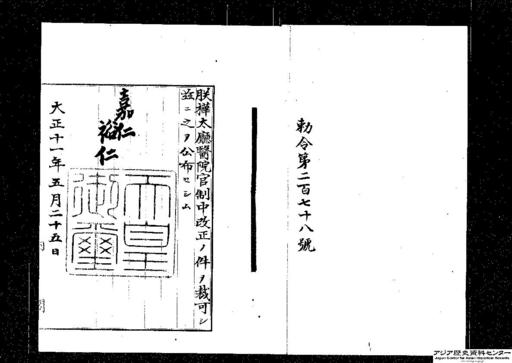 勅令第二百七十八號
朕樺太廳醫院官制中改正ノ件ヲ裁可シ
茲ニ之ヲ公布セシム
嘉仁
裕仁
天皇
御璽
大正十一年五月二十五日
アジア歴史資料センター
Japan Center for Asian Historical Records